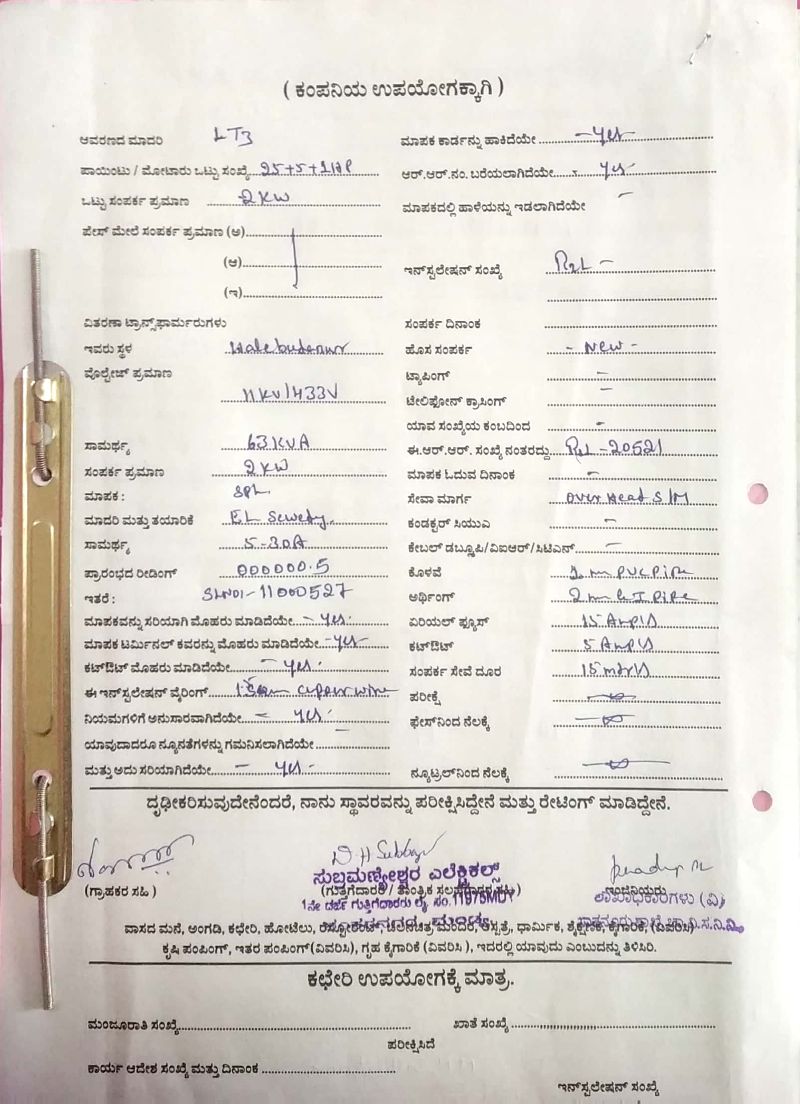 ( ಕಂಪನಿಯ ಉಪಯೋಗಕ್ಕಾಗಿ )
ಆವರಣದ ಮಾದರಿ LT3
ಪಾಯಿಂಟು / ಮೋಟಾರು ಒಟ್ಟು ಸಂಖ್ಯೆ 25+5+1HP
ಒಟ್ಟು ಸಂಪರ್ಕ ಪ್ರಮಾಣ 2KW
ಫೇಸ್ ಮೇಲೆ ಸಂಪರ್ಕ ಪ್ರಮಾಣ (ಅ)
(ಆ)
(ಇ)
ವಿತರಣಾ ಟ್ರಾನ್ಸ್‌ಫಾರ್ಮರುಗಳು
ಇವರು ಸ್ಥಳ
ವೊಲ್ಟೇಜ್ ಪ್ರಮಾಣ
11KV/433V
ಸಾಮರ್ಥ್ಯ 63KVA
ಸಂಪರ್ಕ ಪ್ರಮಾಣ 2KW
ಮಾಪಕ :
ಮಾದರಿ ಮತ್ತು ತಯಾರಿಕೆ
ಸಾಮರ್ಥ್ಯ 5-30A
ಪ್ರಾರಂಭದ ರೀಡಿಂಗ್ 000000.5
ಇತರೆ : SLNO1-11000527
ಮಾಪಕವನ್ನು ಸರಿಯಾಗಿ ಮೊಹರು ಮಾಡಿದೆಯೇ - yes -
ಮಾಪಕ ಟರ್ಮಿನಲ್ ಕವರನ್ನು ಮೊಹರು ಮಾಡಿದೆಯೇ - yes -
ಕಟ್‌ಔಟ್ ಮೊಹರು ಮಾಡಿದೆಯೇ - yes -
ಈ ಇನ್‌ಸ್ಟಲೇಷನ್ ವೈರಿಂಗ್ wire
ನಿಯಮಗಳಿಗೆ ಅನುಸಾರವಾಗಿದೆಯೇ - yes -
ಯಾವುದಾದರೂ ನ್ಯೂನತೆಗಳನ್ನು ಗಮನಿಸಲಾಗಿದೆಯೇ -
ಮತ್ತು ಅದು ಸರಿಯಾಗಿದೆಯೇ - yes -
ಮಾಪಕ ಕಾರ್ಡನ್ನು ಹಾಕಿದೆಯೇ - yes -
ಆರ್.ಆರ್.ನಂ. ಬರೆಯಲಾಗಿದೆಯೇ - yes
ಮಾಪಕದಲ್ಲಿ ಹಾಳೆಯನ್ನು ಇಡಲಾಗಿದೆಯೇ -
ಇನ್‌ಸ್ಟಲೇಷನ್ ಸಂಖ್ಯೆ
ಸಂಪರ್ಕ ದಿನಾಂಕ
ಹೊಸ ಸಂಪರ್ಕ - New -
ಟ್ಯಾಪಿಂಗ್ -
ಟೇಲಿಫೋನ್ ಕ್ರಾಸಿಂಗ್ -
ಯಾವ ಸಂಖ್ಯೆಯ ಕಂಬದಿಂದ -
ಈ.ಆರ್.ಆರ್. ಸಂಖ್ಯೆ ನಂತರದ್ದು -20521
ಮಾಪಕ ಓದುವ ದಿನಾಂಕ -
ಸೇವಾ ಮಾರ್ಗ Over Head S/M
ಕಂಡಕ್ಟರ್ ಸಿಯುಎ -
ಕೇಬಲ್ ಡಬ್ಲೂಪಿ/ವಿಐಆರ್/ಸಿಟಿಎನ್ -
ಕೊಳವೆ PVC Pipe
ಅರ್ಥಿಂಗ್ 2 m G I Pipe
ಏರಿಯಲ್ ಫ್ಯೂಸ್ 15 Amp
ಕಟ್‌ಔಟ್ 5 Amp
ಸಂಪರ್ಕ ಸೇವೆ ದೂರ 15 mtrs
ಪರೀಕ್ಷೆ
ಫೇಸ್‌ನಿಂದ ನೆಲಕ್ಕೆ
ನ್ಯೂಟ್ರಲ್‌ನಿಂದ ನೆಲಕ್ಕೆ
ದೃಢೀಕರಿಸುವುದೇನೆಂದರೆ, ನಾನು ಸ್ಥಾವರವನ್ನು ಪರೀಕ್ಷಿಸಿದ್ದೇನೆ ಮತ್ತು ರೇಟಿಂಗ್ ಮಾಡಿದ್ದೇನೆ.
ಸುಬ್ರಮಣ್ಯೇಶ್ವರ ಎಲೆಕ್ಟ್ರಿಕಲ್ಸ್
(ಗ್ರಾಹಕರ ಸಹಿ ) (ಗುತ್ತಿಗೆದಾರರ / ತಾಂತ್ರಿಕ ಇಂಜಿನಿಯರು
1ನೇ ದರ್ಜೆ ಗುತ್ತಿಗೆದಾರರು ಲೈ. ಸಂ.11975MDY
ವಾಸದ ಮನೆ, ಅಂಗಡಿ, ಕಛೇರಿ, ಹೋಟೆಲು, ರೆಸ್ಟೋರೆಂಟ್, ಚಲನಚಿತ್ರ, ಮಂದಿರ, ಆಸ್ಪತ್ರೆ, ಧಾರ್ಮಿಕ, ಶೈಕ್ಷಣಿಕ, ಕೈಗಾರಿಕೆ, (ವಿವರಿಸಿ)
ಕೃಷಿ ಪಂಪಿಂಗ್, ಇತರ ಪಂಪಿಂಗ್(ವಿವರಿಸಿ), ಗೃಹ ಕೈಗಾರಿಕೆ (ವಿವರಿಸಿ ), ಇದರಲ್ಲಿ ಯಾವುದು ಎಂಬುದನ್ನು ತಿಳಿಸಿರಿ.
ಕಛೇರಿ ಉಪಯೋಗಕ್ಕೆ ಮಾತ್ರ.
ಮಂಜೂರಾತಿ ಸಂಖ್ಯೆ ಖಾತೆ ಸಂಖ್ಯೆ
ಪರೀಕ್ಷಿಸಿದೆ
ಕಾರ್ಯ ಆದೇಶ ಸಂಖ್ಯೆ ಮತ್ತು ದಿನಾಂಕ
ಇನ್‌ಸ್ಟಲೇಷನ್ ಸಂಖ್ಯೆ